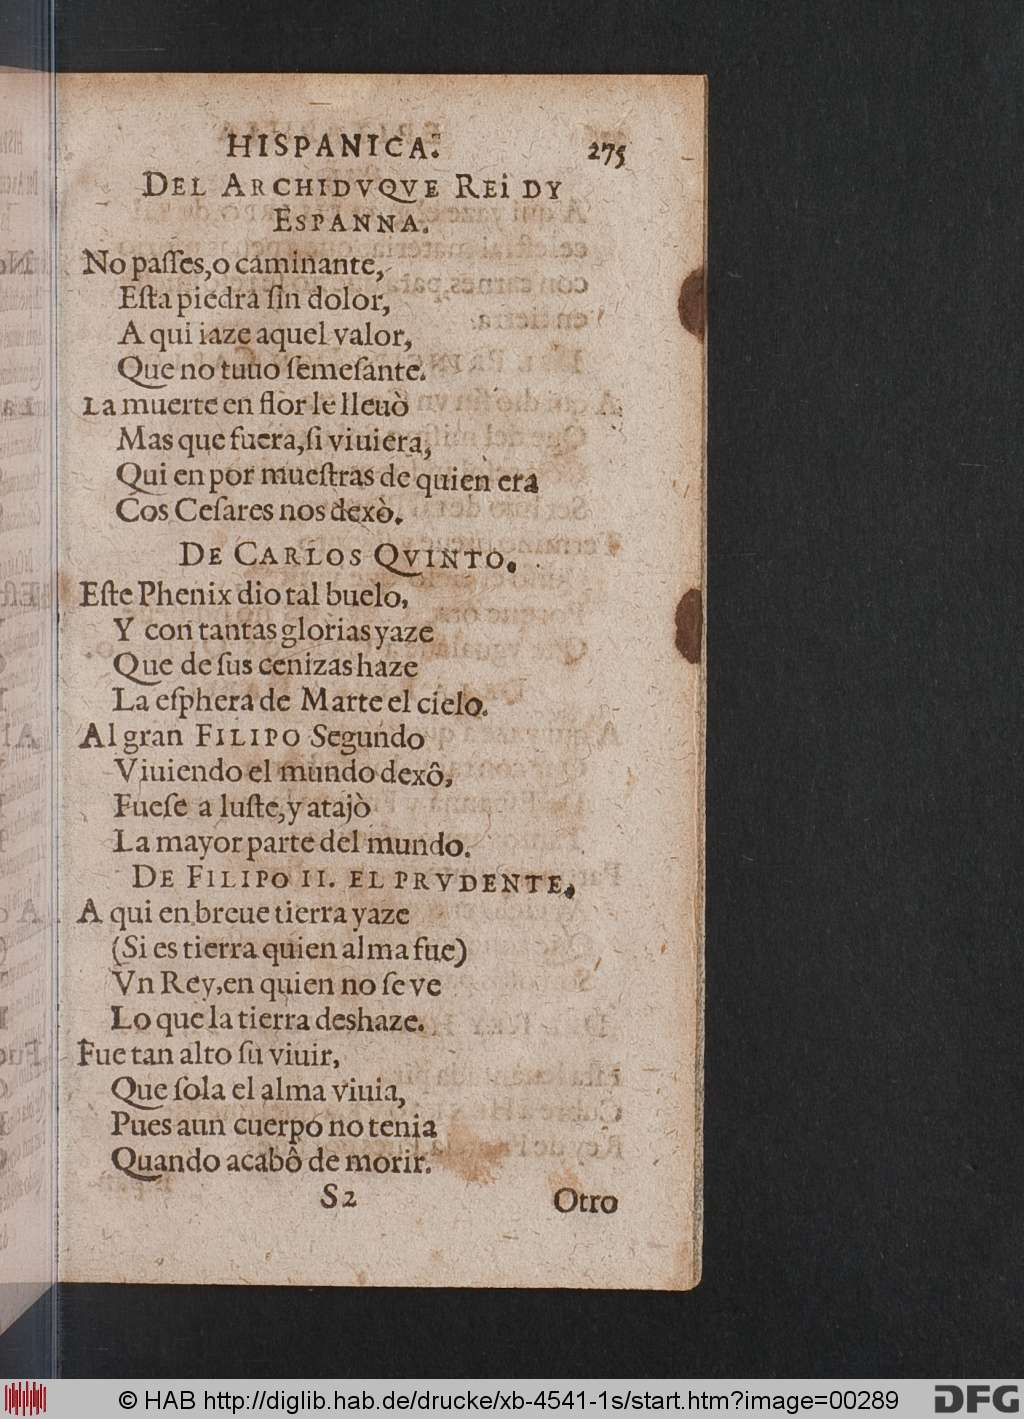 HISPANICA.
275
DEL ARCHIDVQVE REI DY
ESPANNA.
No paſſes, o caminante,
Eſta piedra ſin dolor,
A qui iaze aquel valor,
Que no tuuo ſemeſante.
La muerte en flor le lleuò
Mas que fuera, ſi viuiera,
Qui en por mueſtras de quien era
Cos Ceſares nos dexò.
DE CARLOS QVINTO.
Eſte Phenix dio tal buelo,
Y con tantas glorias yaze
Que de ſus cenizas haze
La eſphera de Marte el cielo.
Al gran FILIPO Segundo
Viuiendo el mundo dexô,
Fueſe a Iuſte, y atajò
La mayor parte del mundo.
DE FILIPO II. EL PRVDENTE,
A qui en breue tierra yaze
(Si es tierra quien alma fue)
Vn Rey, en quien no ſe ve
Lo que la tierra deshaze.
Fue tan alto ſu viuir,
Que ſola el alma viuia,
Pues aun cuerpo no tenia
Quando acabô de morir.
S2
Otro
© HAB http://diglib.hab.de/drucke/xb-4541-1s/start.htm?image=00289
DFG